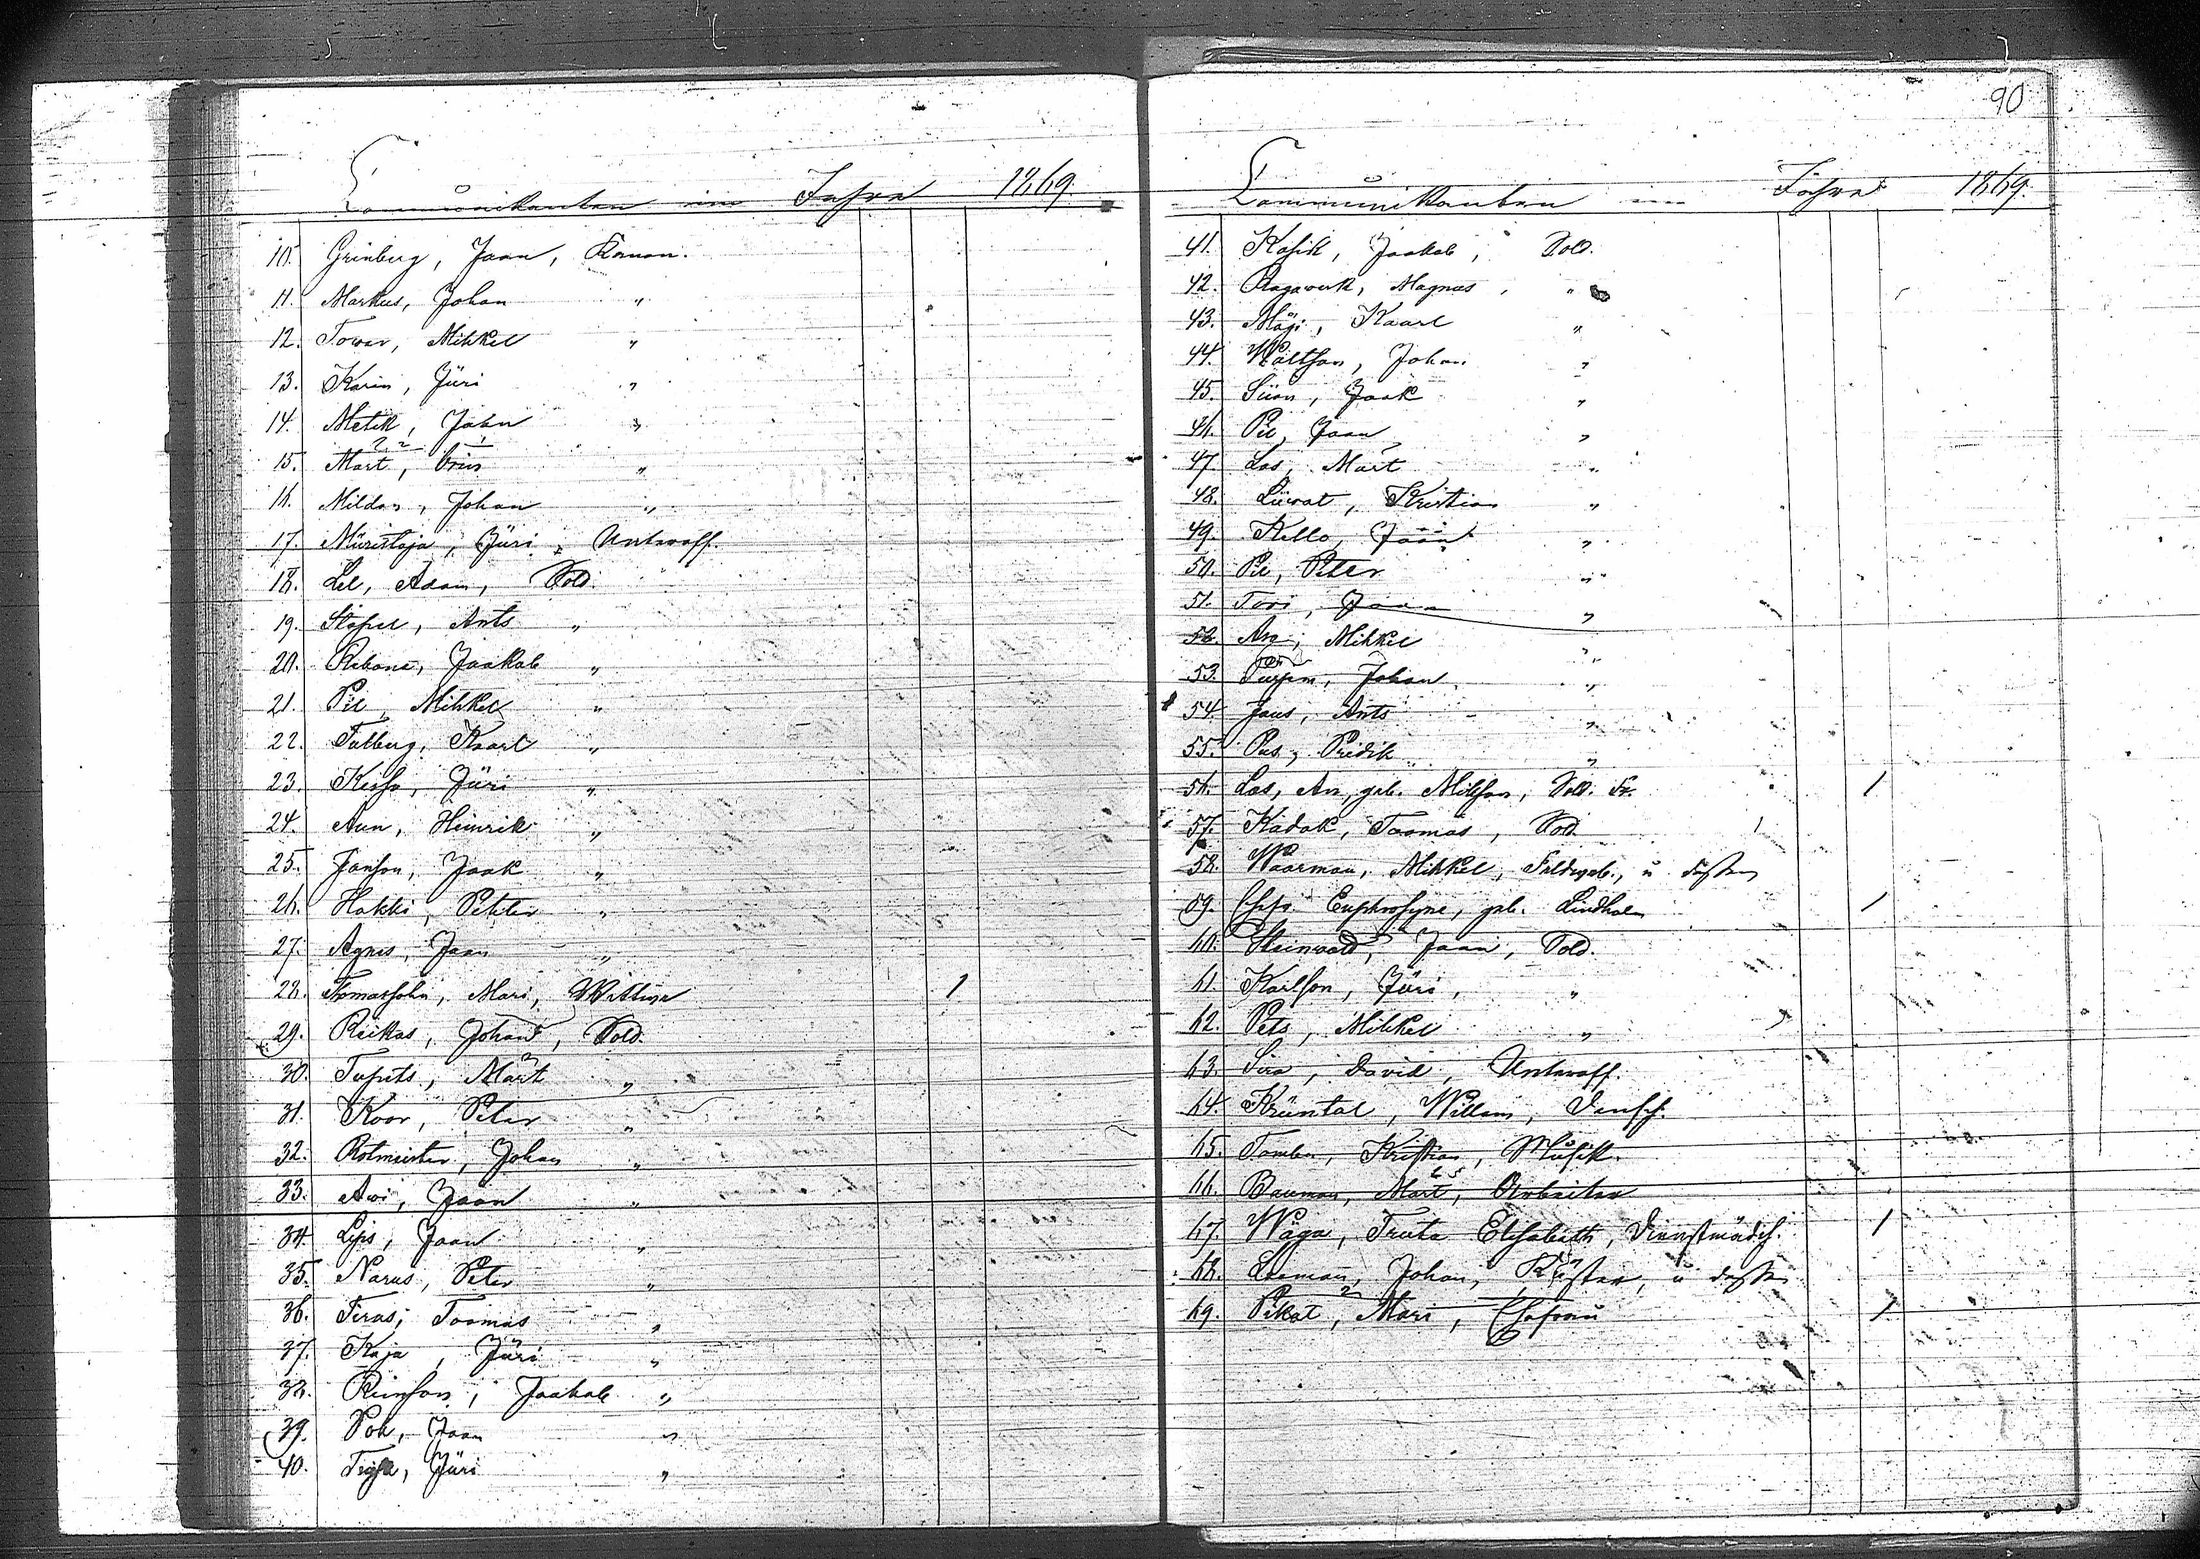 Communikanten im Jahre 1869.
10. Grinberg, Jaan, Kanon.
11. Markus, Johan "
12. Towar, Mihkel "
13. Karin, Jüri "
14. Metik, Jaan "
15. Mart, "
16. Mildan, Johan "
17. Müristaja, Jüri, Unteroff.
18. Lel, Adam, Sold.
19. Stapel, Ants "
20. Rebane, Jaakob "
21. Pil, Mihkel "
22. Talberg, Kaarl "
23. Jüri "
24. Aun, Heinrik "
25. Janson, Jaak "
26. Hakki, Peter "
27. Agnes, Jaan "
28. Tomassohn, Mari, Wittwe 1
29. Reikas, Johan, Sold.
30. Tupits, Mart "
31. Koor, Peter "
32. Rotmeister, Johan "
33. Awi, Jaan "
34. Lips, Jaan "
35. Narus, Peter "
36. Feras, Toomas "
37. Kaja, Jüri "
38. Reinson, Jaakob "
39. Pok, Jaan "
40. Jüri "
90
Communikanten im Jahre 1869.
41. Kasik, Jaakob, Sold.
42. Ragawerk, Magnus, "
43. Mägi, Kaarl "
44. Waltson, Johan "
45. Siion, Jaak "
46. Pil, Jaan "
47. Las, Mart "
48. Liiwat, Kristian "
49. Kello, Jaan "
50. Pil, Peter "
51. Tori, Jaan "
52. Arg, Mihkel "
53. Johan "
54. Jaus, Ants "
55. Pus, Predik "
56. Las, An, geb. Milson, Sold. Fr. 1
57. Kadak, Toomas, Sold.
58. Waarman, Mihkel, Feldweb., u dessen
59. Ehefr. Euphrosyne, geb. Lindholm 1
60. Steinwald, Jaan, Sold.
61. Karlson, Jüri, "
62. Pets, Mihkel "
63. Sira, David, Unteroff.
64. Krüntal, Willem,
65. Tomber, Kristian, Musik.
66. Bauman, Mart, Arbeiter
67. Wäga, Truta Elisabeth, Dienstmädch. 1
68. Leeman, Johan, Küster, u dessen
69. Pikat, Mari, Ehefrau 1